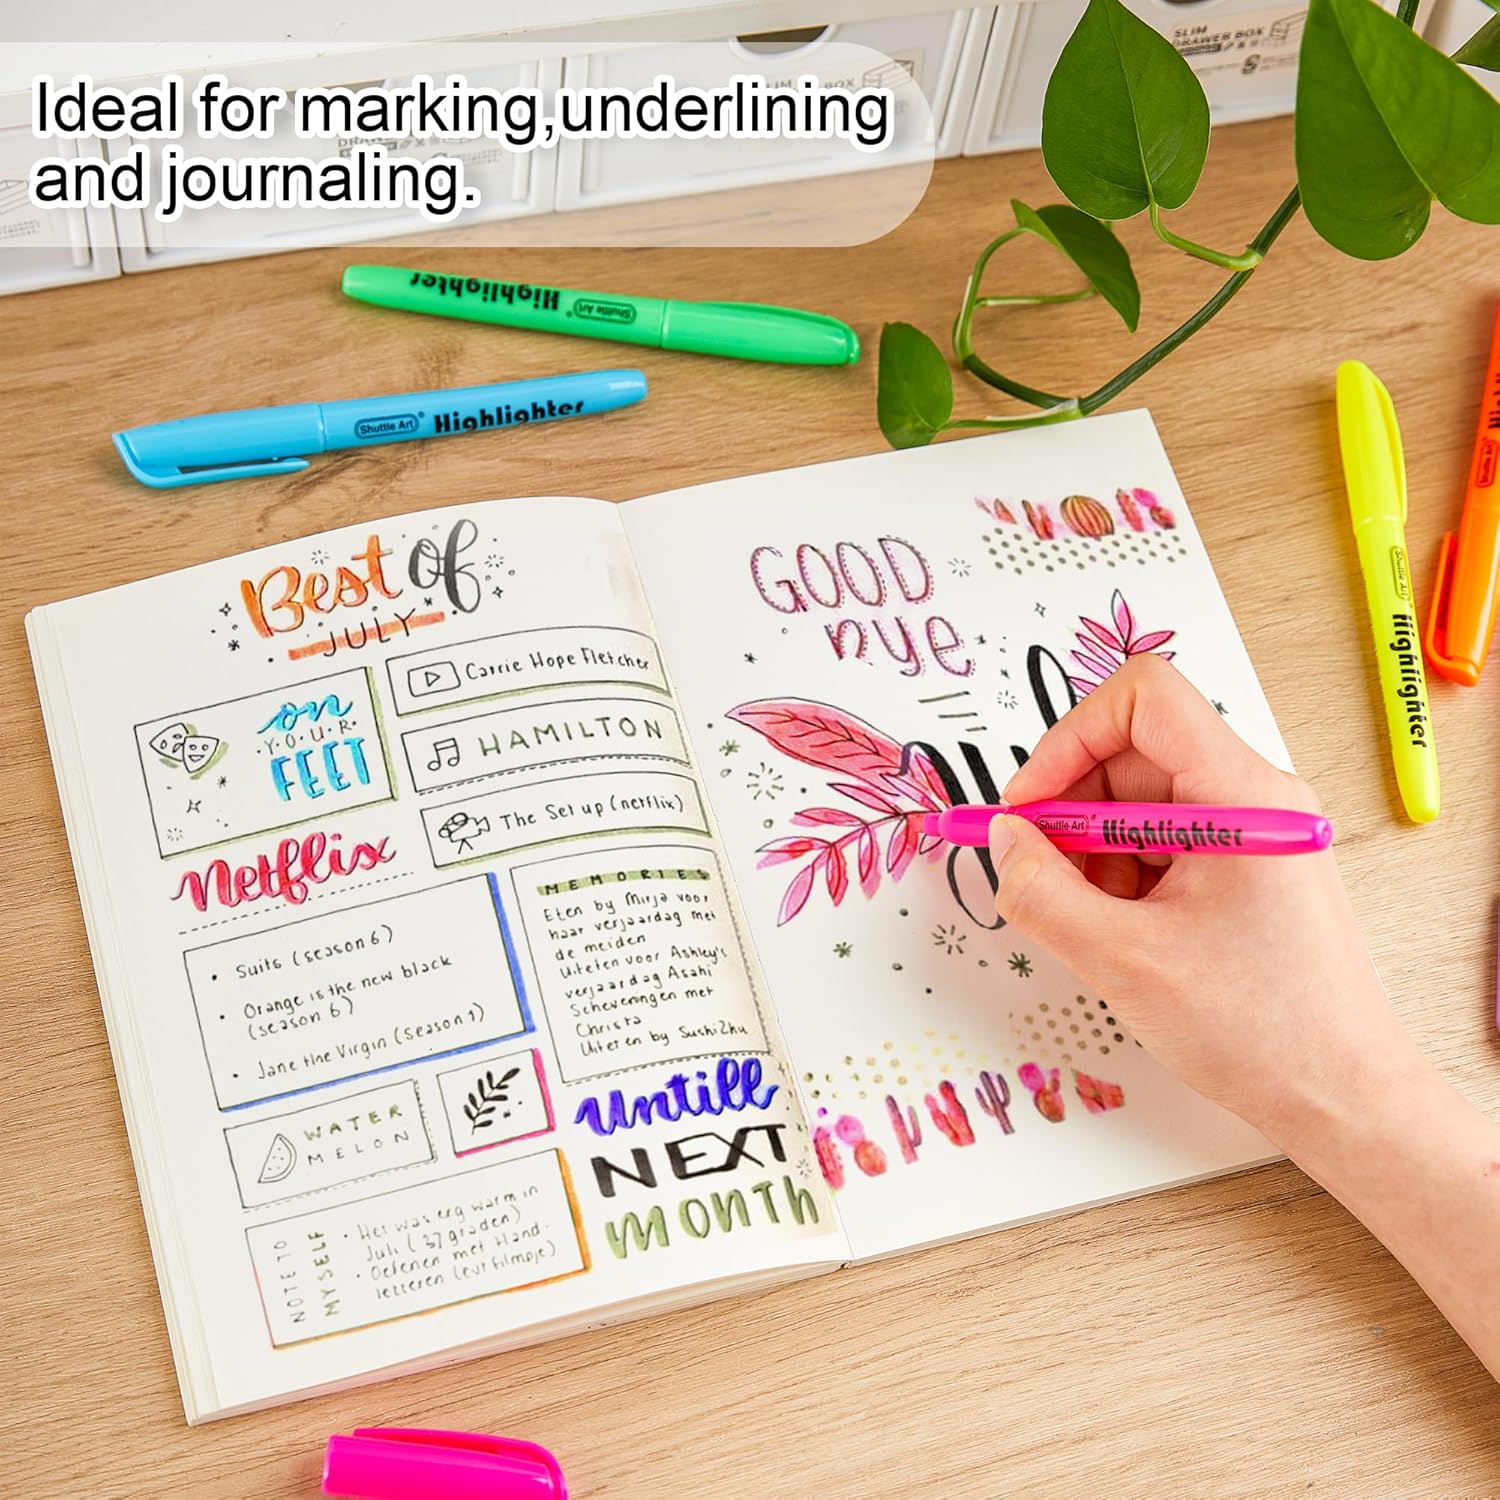 Ideal for marking,underlining
and journaling.
SLIM
DRAWER BOX
SLIM
BOX
Shuttle Art® Highlighter
Shuttle Art® Highlighter
Best of
JULY
Carrie Hope Fletcher
on
YOUR
FEET
HAMILTON
The Set up (netflix)
Netflix
• Suits (season 6)
• Orange is the new black
(season 6)
• Jane the Virgin (season 1)
MEMORIES
Eten by Mirja voor
haar verjaardag met
de meiden
Uiteten voor Ashley's
verjaardag Asahi
Scheveningen met
Christa
Uiteten by Sushi Zhu
WATER
MELON
NOTE TO
MYSELF
• Het was erg warm in
Juli (37 graden)
• Oefenen met Hand-
letteren (evt filmpje)
Untill
NEXT
MONTH
GOOD
nye
Shuttle Art Highlighter
Shuttle Art Highlighter
Shuttle Art